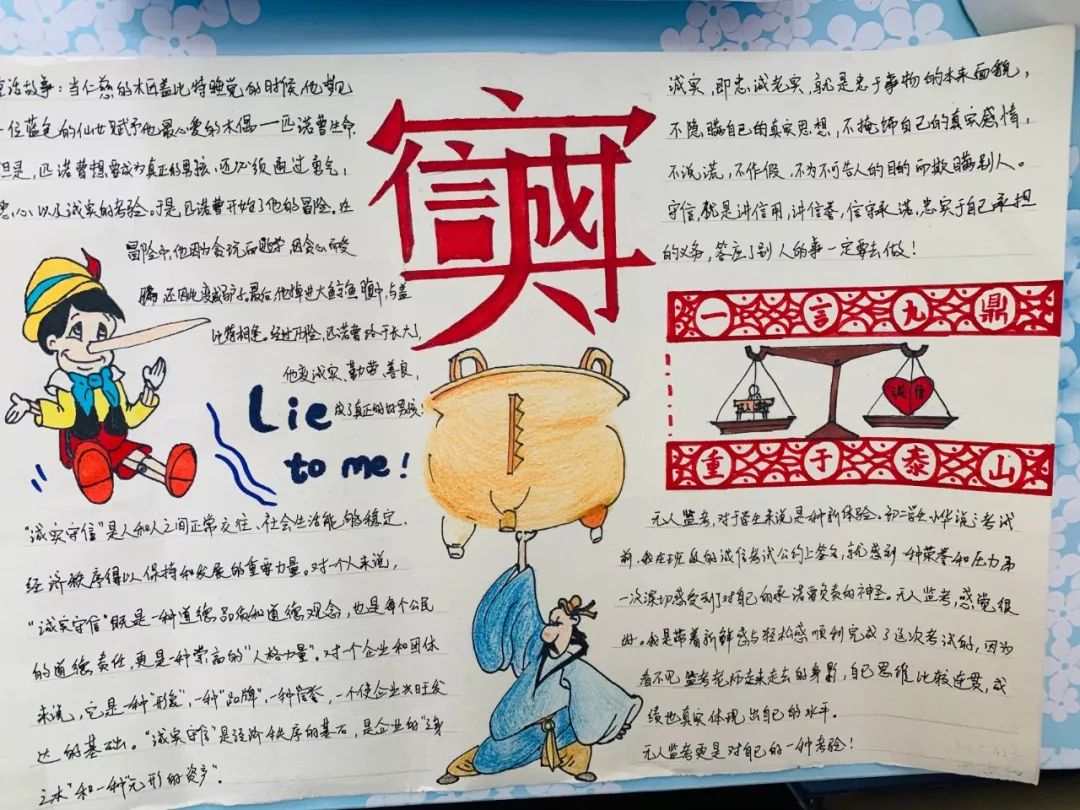 童话故事：当仁慈的木匠盖比特睡觉的时候，他梦见
一位蓝色的仙女赋予他最心爱的木偶一匹诺曹生命.
但是，匹诺曹想要成为真正的男孩，还必须通过勇气，
忠心以及诚实的考验。于是，匹诺曹开始了他的冒险。在
冒险中，他因为贪玩而逃学，因贪心而受
骗 还因此变成驴子。最后，他掉进大鲸鱼腹中，与盖
比特相逢。经过历险，匹诺曹终于长大了，
他变诚实、勤劳、善良，
成了真正的好男孩！
Lie
to me!
诚信
诚实，即忠诚老实，就是忠于事物的本来面貌，
不隐瞒自己的真实思想，不掩饰自己的真实感情，
不说谎，不作假，不为不可告人的目的而欺瞒别人。
守信，就是讲信用，讲信誉，信守承诺，忠实于自己承担
的义务，答应了别人的事一定要去做！
一言九鼎
诚信
重于泰山
"诚实守信"是人和人之间正常交往、社会生活能够稳定、
经济秩序得以保持和发展的重要力量。对一个人来说，
"诚实守信"既是一种道德品质和道德观念，也是每个公民
的道德责任，更是一种崇高的"人格力量"。对一个企业和团体
来说，它是一种"形象"，一种"品牌"，一种信誉，一个使企业兴旺发
达的基础。"诚实守信"是经济秩序的基石，是企业的"立身
之本"和一种"无形的资产"。
无人监考，对于学生来说是一种新体验。初二学生小华说：考试
前，我在班级的诚信考试公约上签名，就感到一种荣誉和压力第
一次深切感受到了对自己的承诺要负责的神圣。无人监考，感觉很
好。我是带着新鲜感与轻松感顺利完成了这次考试的，因为
看不见监考老师走来走去的身影，自己思维比较连贯，成
绩也真实体现出自己的水平.
无人监考更是对自己的一种考验！